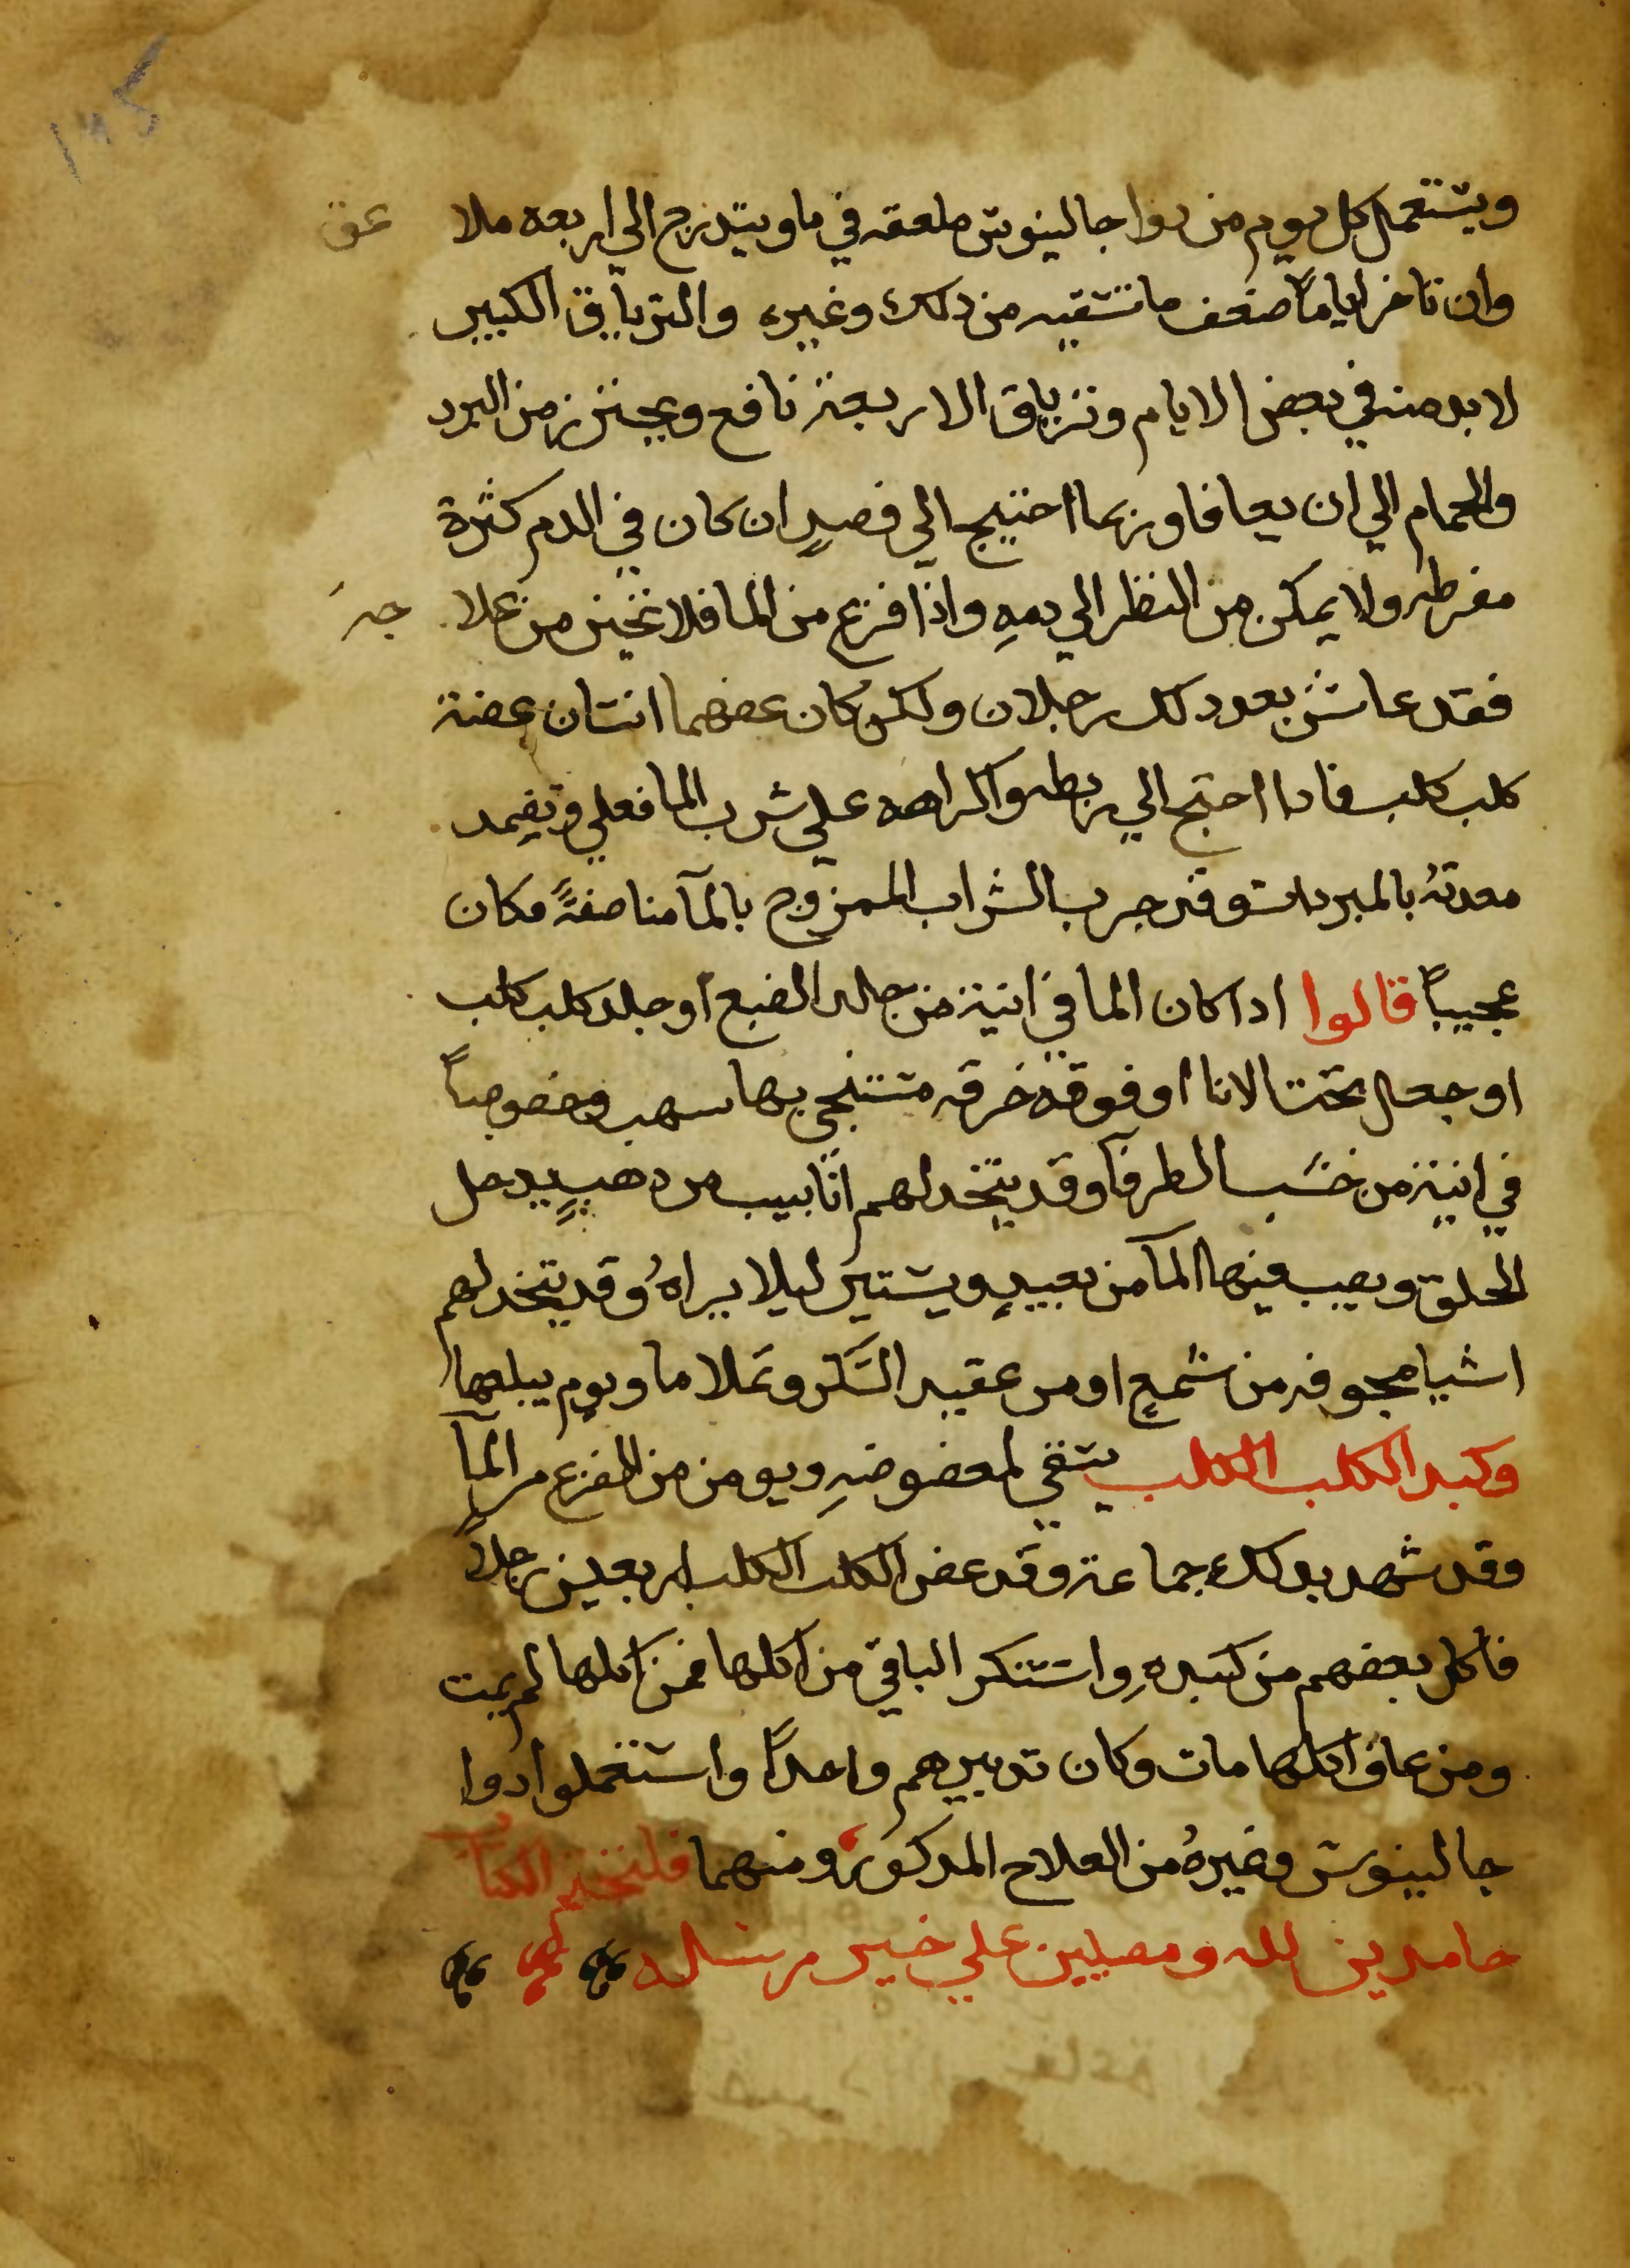 ويستعمل كل يوم من دوا جالينوس ملعقه في ما ويتدرج الي اربعه ملا عق
وان تاخر اياماً ضعف ما تسقيه من دلك وغيره والترياق الكبير
لا بد منه في بعض الايام وترياق الاربعة نافع ويحترز من البرد
والحمام الي ان يعافا وربما احتيج الي فصدٍ ان كان في الدم كثرة
مفرطه ولا يمكن من النظر الي دمهِ واذا فزع من الما فلا تجبن من علا جه
فقد عاش بعد دلك رجلان ولكن كان عضهما انسان عضة
كلب كلب فادا احتيج الي ربطه واكراهه علي شرب الما فعلي وتضمد
معدتهُ بالمبردات وقد جرب الشراب الممزوج بالمآ مناصفةً فكان
عجيباً قالوا ادا كان الما في انية من جلد الضبع او جلد كلب كلب
او جعل تحت الانا او فوقه خرقه مستنجي بها سهب وخصوصاً
في انية من خشب الطرفآ وقد يتخد لهم انابيب من دهبٍ يدخل
الحلق ويصب فيها المآ من بعيدٍ ويستتر ليلا يراهُ وقد يتخد لهم
اشيا مجوفه من شمعٍ او من عقيد السكر وتملا ما ويوم يبلعها
وكبد الكلب الكلب يسقي لمعضوضهِ ويومن من الفزع من المآ
وقد شهد بدلك جماعة وقد عض الكلب الكلب اربعين رجلاً
فاكل بعضهم من كبدهِ واستنكر الباقي من اكلها فمن اكلها لم يمت
ومن عاف اكلها مات وكان تدبيرهم واحداً واستعملوا دوا
جالينوس وغيرهُ من العلاج المدكور ومنهما فلنختم الكتاب
حامدين لله ومصليين علي خير مرسله